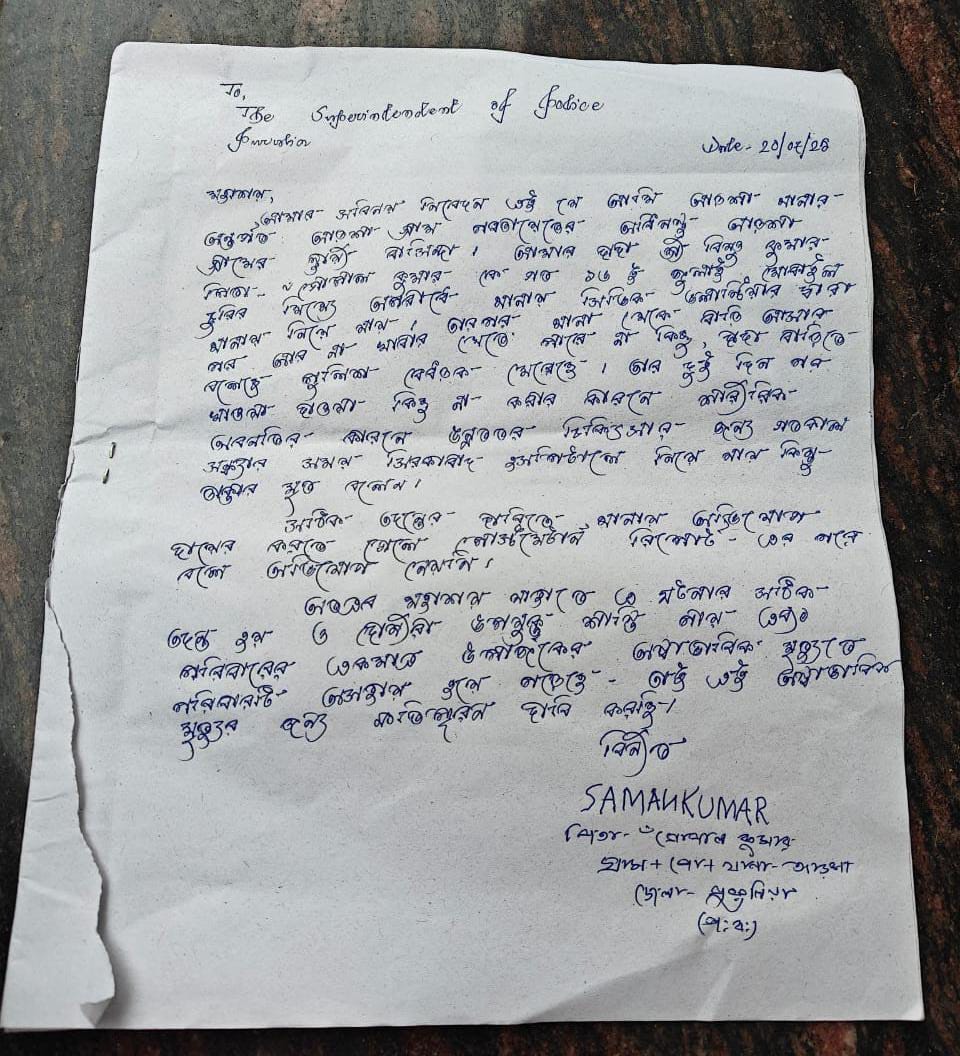 To,
The Superintendent of Police
Purulia
Date - 20/07/
মহাশয়,
আমার সবিনয় নিবেদন এই যে আমি আড়শা থানার
অন্তর্গত আড়শা গ্রাম পঞ্চায়েতের আড়শা
গ্রামের স্থায়ী বাসিন্দা। আমার দাদা শ্রী বিষ্ণু কুমার
পিতা - ঁগোপাল কুমার কে গত ১৬ ই জুলাই মোবাইল
চুরির মিথ্যে অপবাদে থানায় সিভিক ভলান্টিয়ার দ্বারা
থানায় নিয়ে যায়। তারপর থানা থেকে বাড়ি আসার
পর আর না খাবার খেতে পারে না কিছু, দাদা বাড়িতে
বলেছে পুলিশ বেধড়ক মেরেছে। তার দুই দিন পর
খাওয়া দাওয়া কিছু না করার কারনে শারীরিক
অবনতির কারনে উন্নততর চিকিৎসার জন্য গতকাল
সন্ধ্যার সময় সিরকাবাদ হসপিটালে নিয়ে যায় কিন্তু
ডাক্তার মৃত বলেন।
সঠিক তদন্তের দাবিতে থানায় অভিযোগ
দায়ের করতে গেলে পোস্টমর্টেম রিপোর্ট - এর পরে
বলে অভিযোগ নেয়নি।
অতএব মহাশয় যাহাতে এ ঘটনার সঠিক
তদন্ত হয় ও দোষীরা উপযুক্ত শাস্তি পায় এবং
পরিবারের একমাত্র উপার্জকের অস্বাভাবিক মৃত্যুতে
পরিবারটি অসহায় হয়ে পড়েছে - তাই এই অস্বাভাবিক
মৃত্যুর জন্য ক্ষতিপূরন দাবি করছি।
বিনীত
SAMAN KUMAR
পিতা - ঁগোপাল কুমার
গ্রাম + পো + থানা - আড়শা
জেলা - পুরুলিয়া
(প: ব:)